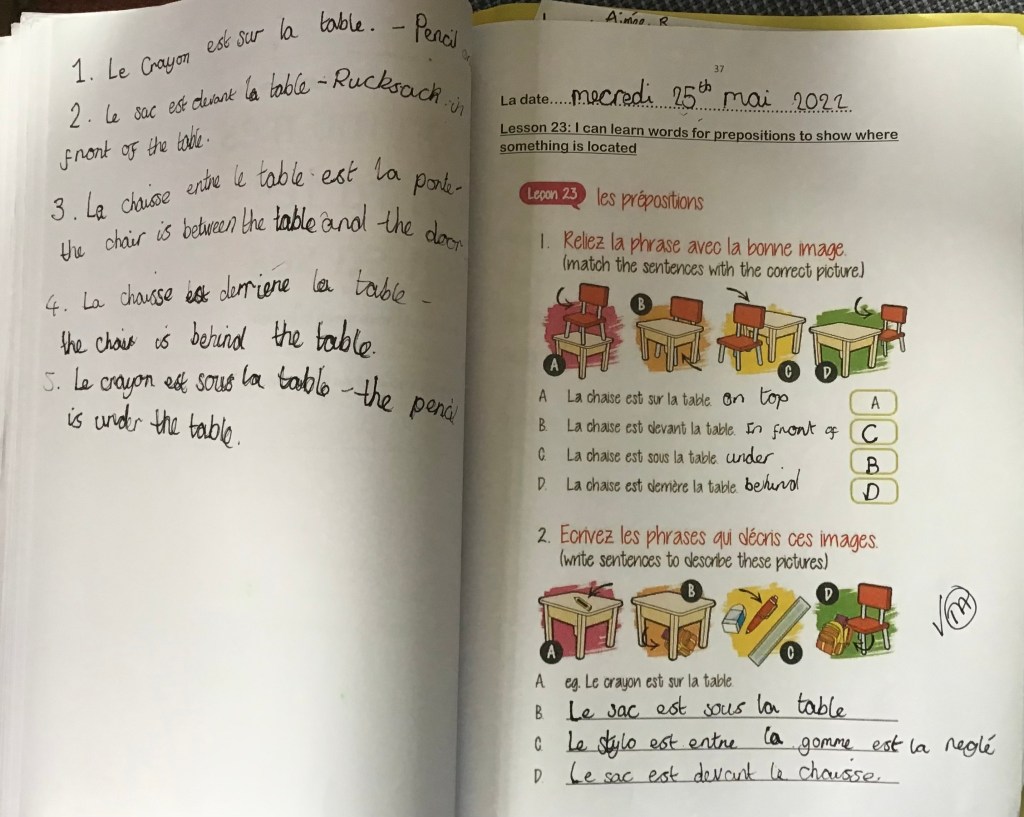 1. Le Crayon est sur la table. - Pencil
2. Le sac est devant la table - Rucksack in
front of the table.
3. La chaisse entre le table est la porte -
the chair is between the table and the door
4. La chausse est derriene la table -
the chair is behind the table.
5. Le crayon est sous la table - the pencil
is under the table.
Aimée. R
37
La date.....mecredi 25th mai 2022
Lesson 23: I can learn words for prepositions to show where
something is located
Leçon 23 les prépositions
1. Reliez la phrase avec la bonne image.
(match the sentences with the correct picture.)
A B C D
A La chaise est sur la table. on top A
B. La chaise est devant la table. In front of C
C La chaise est sous la table. under B
D. La chaise est derrière la table. behind D
2. Ecrivez les phrases qui décris ces images.
(write sentences to describe these pictures)
A B C D
TA
A eg. Le crayon est sur la table.
B. Le sac est sous la table
C. Le stylo est entre la gomme est la reglé
D. Le sac est devant le chausse.